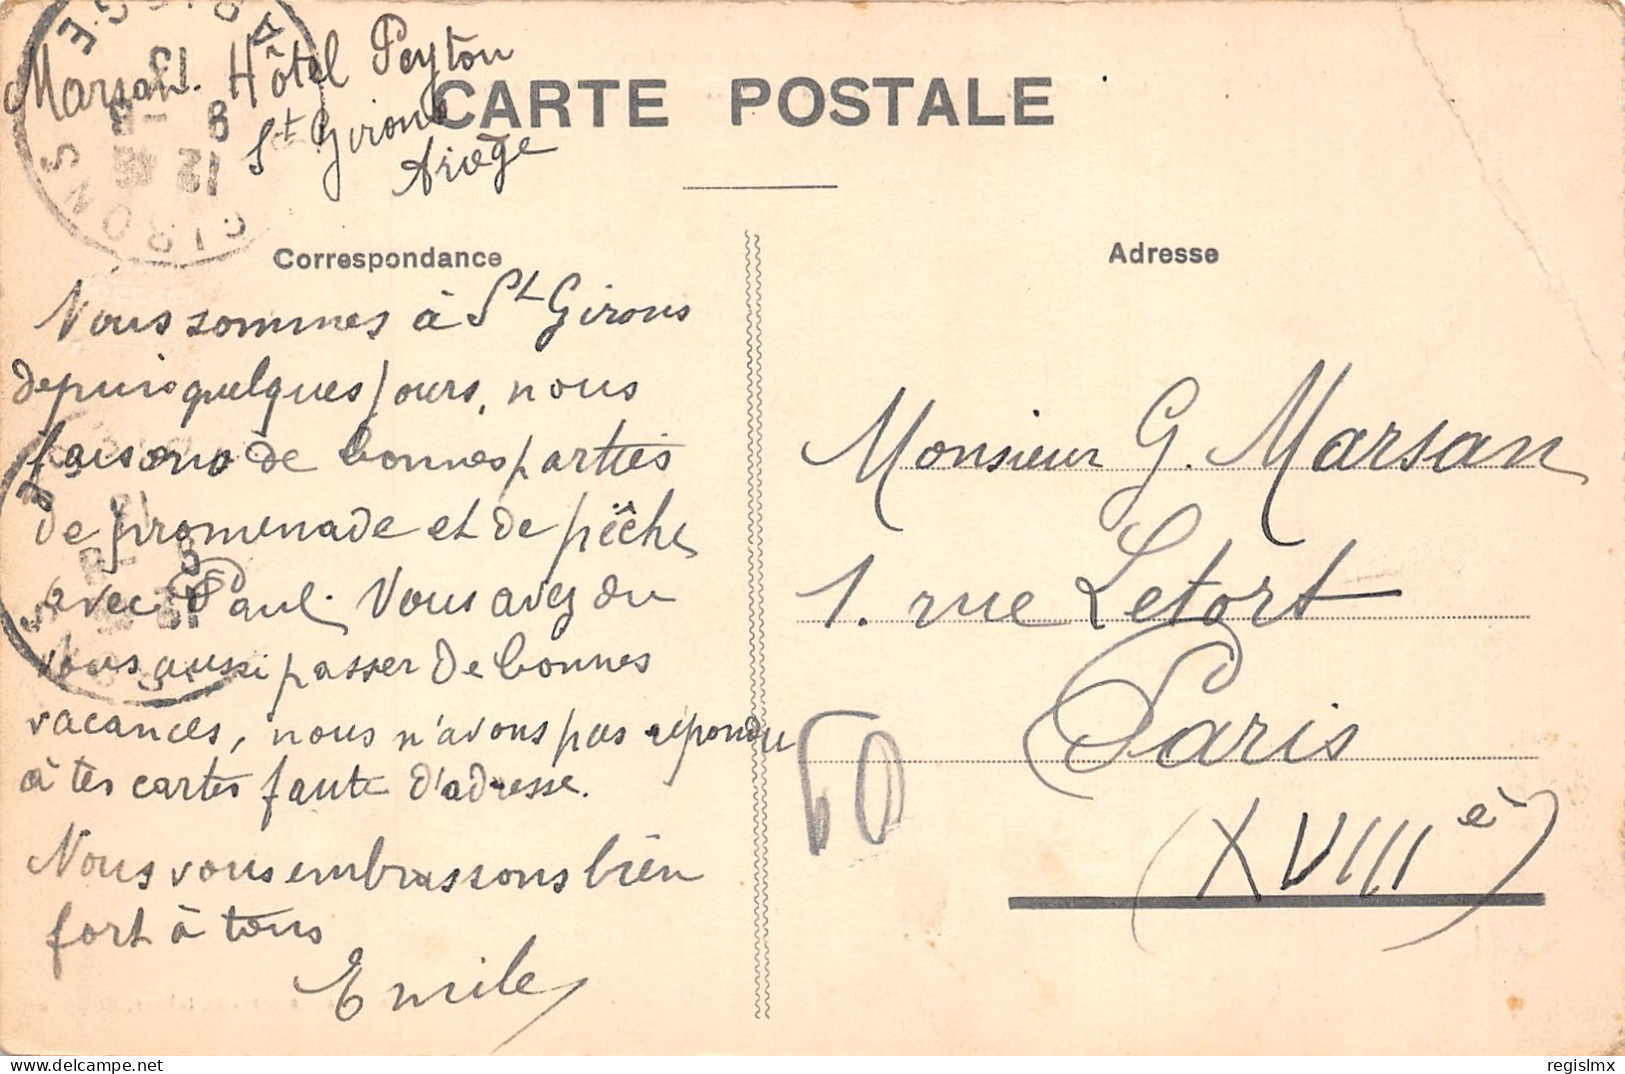 Marsan. Hôtel Peyton
St Girons
Ariège
CARTE POSTALE
Correspondance
Adresse
Nous sommes à St Girons
depuis quelques jours, nous
faisons de bonnes parties
de promenade et de pêche
avec Paul. Vous avez du
vous aussi passer de bonnes
vacances, nous n'avons pas repondu
à tes cartes faute d'adresse.
Nous vous embrassons bien
fort à tous
Emile
Monsieur G. Marsan
1. rue Letort
Paris
(XVIIIè)
60
GIRONS
regislmx
delcampe.net